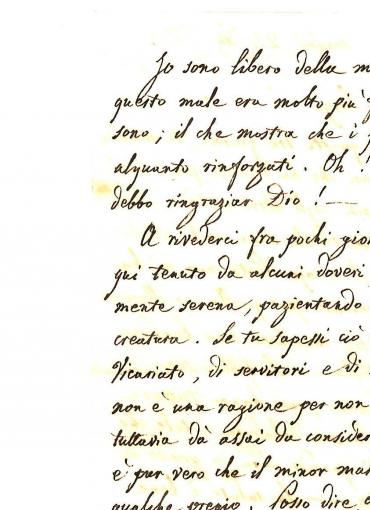 Io sono libero della m
questo male era molto più
sono; il che mostra che i
alquanto rinforzati. Oh!
debbo ringraziar Dio! —
A rivederci fra pochi gior
qui tenuto da alcuni doveri
mente serena, pazientando
creatura. Se tu sapessi ciò
Vicariato, di servitori e di
non è una ragione per non
tuttavia dà assai da consider
è pur vero che il minor mar
qualche premio. Posso dire